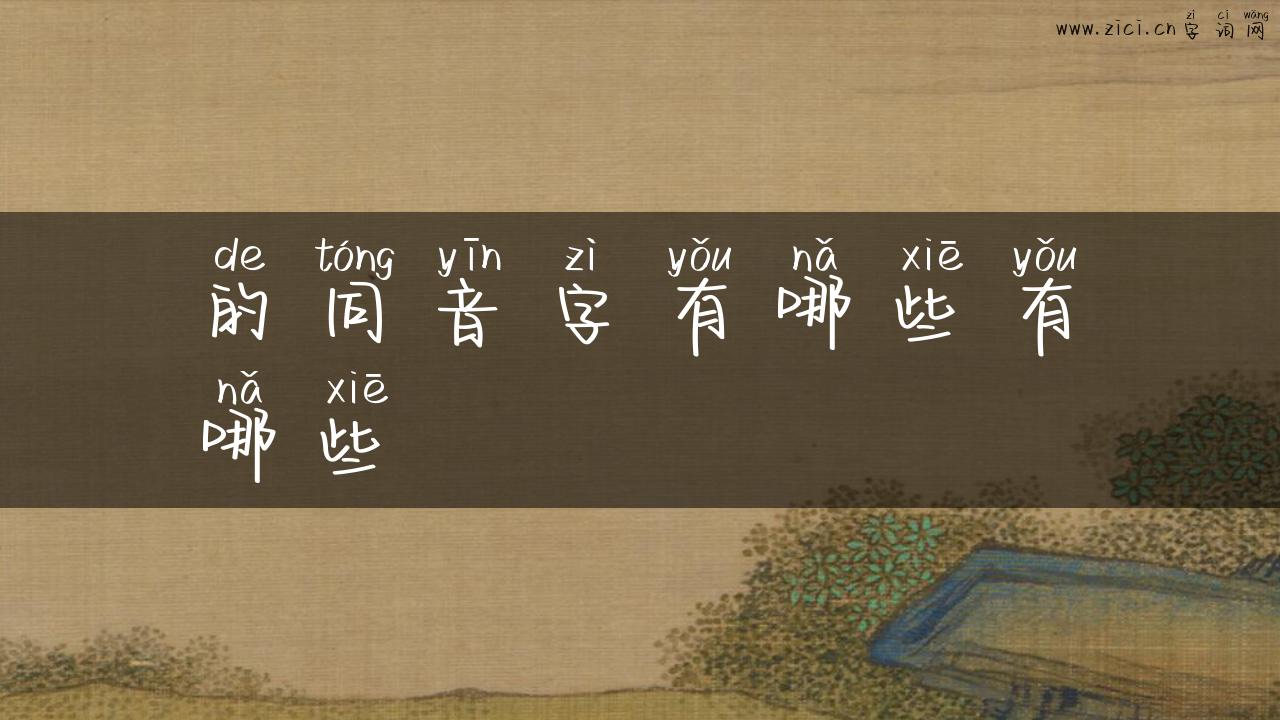 zì cí wǎng
www.zici.cn 字 词 网
de tóng yīn zì yǒu nǎ xiē yǒu
的 同 音 字 有 哪 些 有
nǎ xiē
哪 些